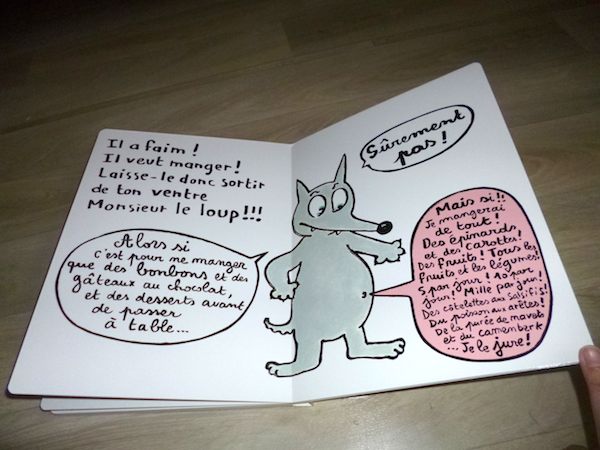 Il a faim !
Il veut manger!
Laisse-le donc sortir
de ton ventre
Monsieur le loup!!!
Alors si
c'est pour me manger
que des bonbons et des
gâteaux au chocolat,
et des desserts avant
de passer
à table...
Sûrement
pas!
Mais si!!
Je mangerai
de tout!
Des épinards
et des carottes!
Des fruits! Tous les
fruits et les légumes!
5 par jour! 10 par
jour! Mille par jour!
Des côtelettes aux salsifis!
Du poisson aux arêtes!
De la purée de navets
et du camembert
... Je le jure!